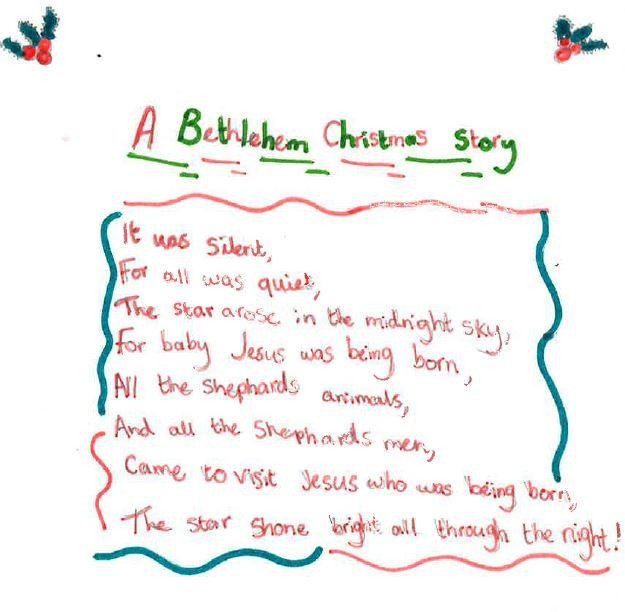 A Bethlehem Christmas Story
It was silent,
For all was quiet,
The star arose in the midnight sky,
For baby Jesus was being born,
All the shephards animals,
And all the shephards men,
Came to visit Jesus who was being born,
The star shone bright all through the night!